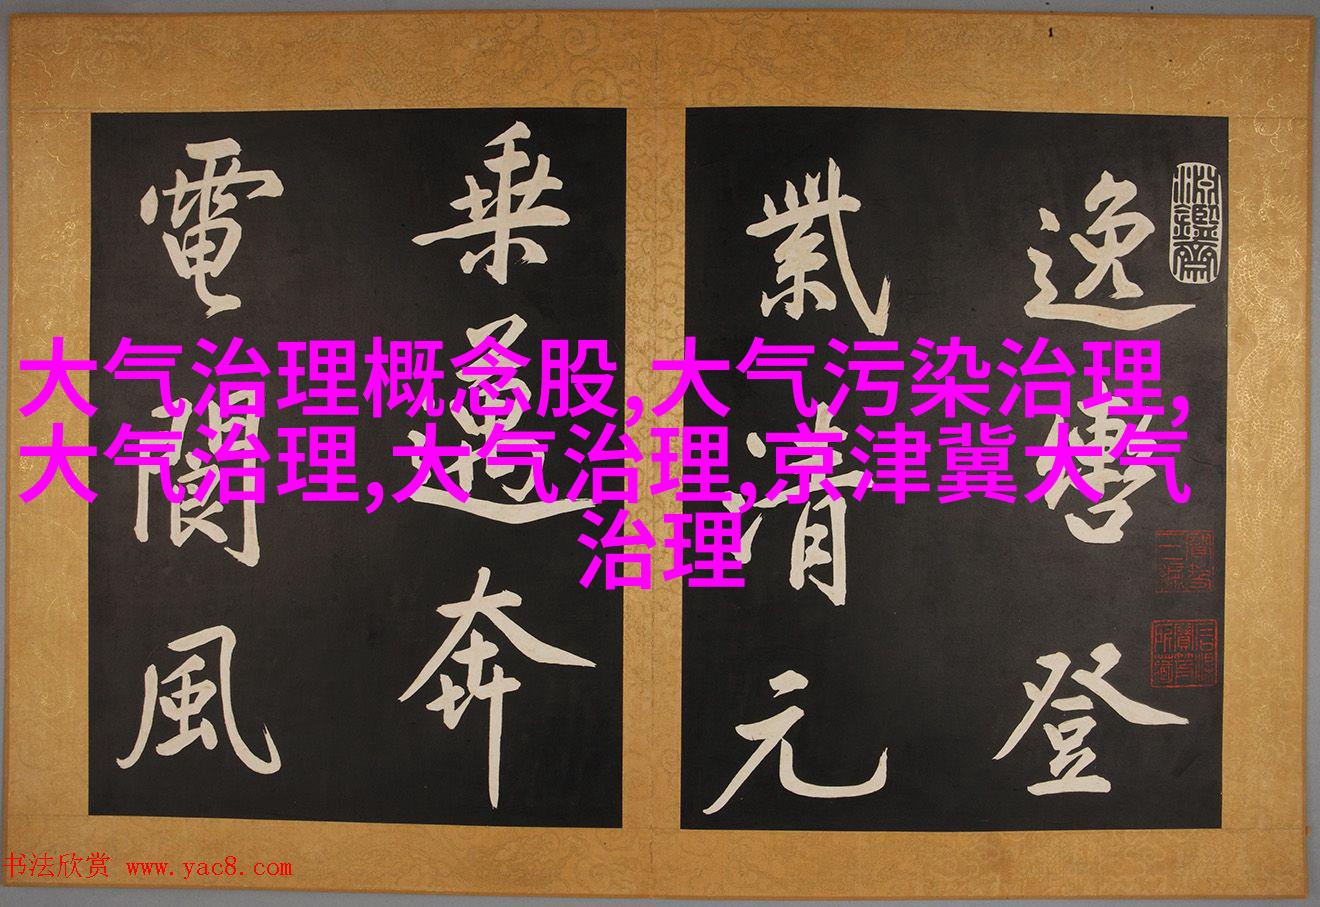 逸轡登
紫清元
乗邁奔
電閬風
大气治理概念股,大气污染治理,
大气治理,大气治理,京津冀大气
治理
书法欣赏 www.yac8.com